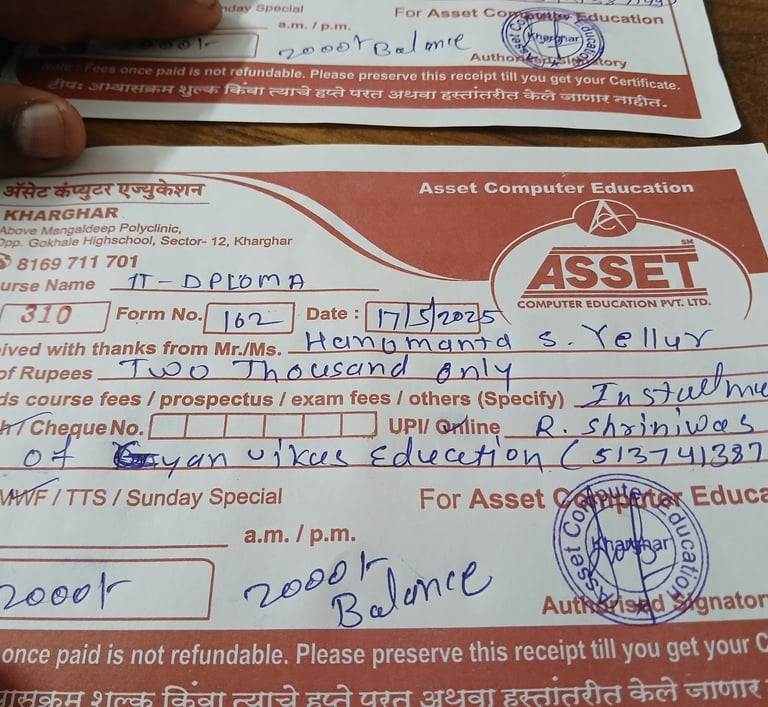 nday Special
a.m. / p.m.
For Asset Computer Education
2000/- Balance
Kharghar
Authorised Signatory
Note : Fees once paid is not refundable. Please preserve this receipt till you get your Certificate.
टीप: अभ्यासक्रम शुल्क किंवा त्याचे हप्ते परत अथवा हस्तांतरीत केले जाणार नाहीत.
ॲसेट कंप्युटर एज्युकेशन
Asset Computer Education
KHARGHAR
Above Mangaldeep Polyclinic,
Opp. Gokhale Highschool, Sector- 12, Kharghar
8169 711 701
ASSET
SM
COMPUTER EDUCATION PVT. LTD.
urse Name IT-DPLOMA
310 Form No. 162 Date : 17/5/2025
ived with thanks from Mr./Ms. Hanomanta S. Yellur
of Rupees Two Thousand only
ds course fees / prospectus / exam fees / others (Specify) Installme
h / Cheque No. UPI/ Online R. Shriniwas
of Gyan Vikas Education (513741387
MWF / TTS / Sunday Special
For Asset Computer Educa
a.m. / p.m.
2000/-
2000/- Balance
Asset Computer Education
Kharghar
Authorised Signator
once paid is not refundable. Please preserve this receipt till you get your C
यासक्रम शुल्क किंवा त्याचे हप्ते परत अथवा हस्तांतरीत केले जाणार